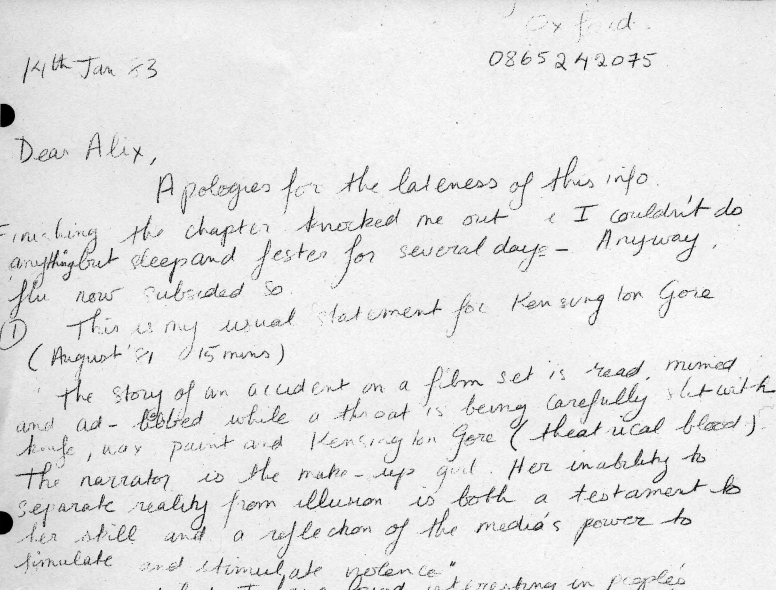 Oxford.
0865242075
14th Jan 83
Dear Alix,
Apologies for the lateness of this info.
Finishing the chapter knocked me out & I couldn't do
anything but sleep and fester for several days – Anyway,
flu now subsided so
① This is my usual statement for Kensington Gore
(August '81 15 mins)
"The story of an accident on a film set is read, mimed
and ad-libbed while a throat is being carefully slit with
knife, wax paint and Kensington Gore (theatrical blood).
The narrator is the make-up girl. Her inability to
separate reality from illusion is both a testament to
her skill and a reflection of the media's power to
simulate and stimulate violence"
I interesting in people's